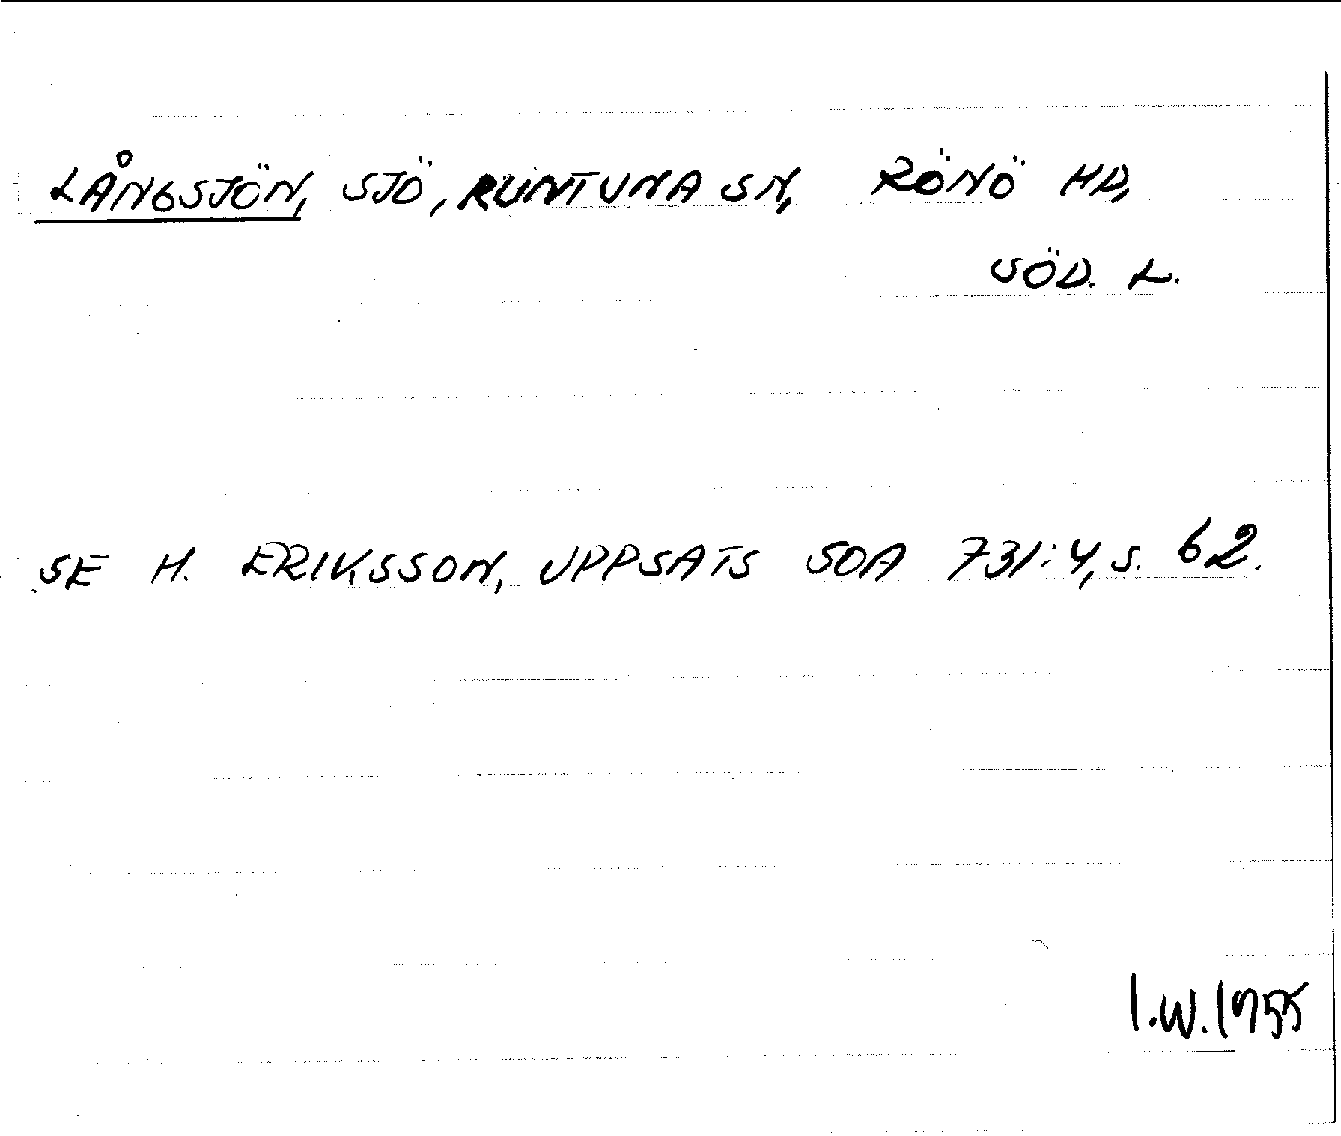 LÅNGSJÖN, SJÖ, RUNTUNA SN, RÖNÖ HD,
SÖD. L.
SE H. ERIKSSON, UPPSATS SOA 731:4, S. 62.
I.W. 1955